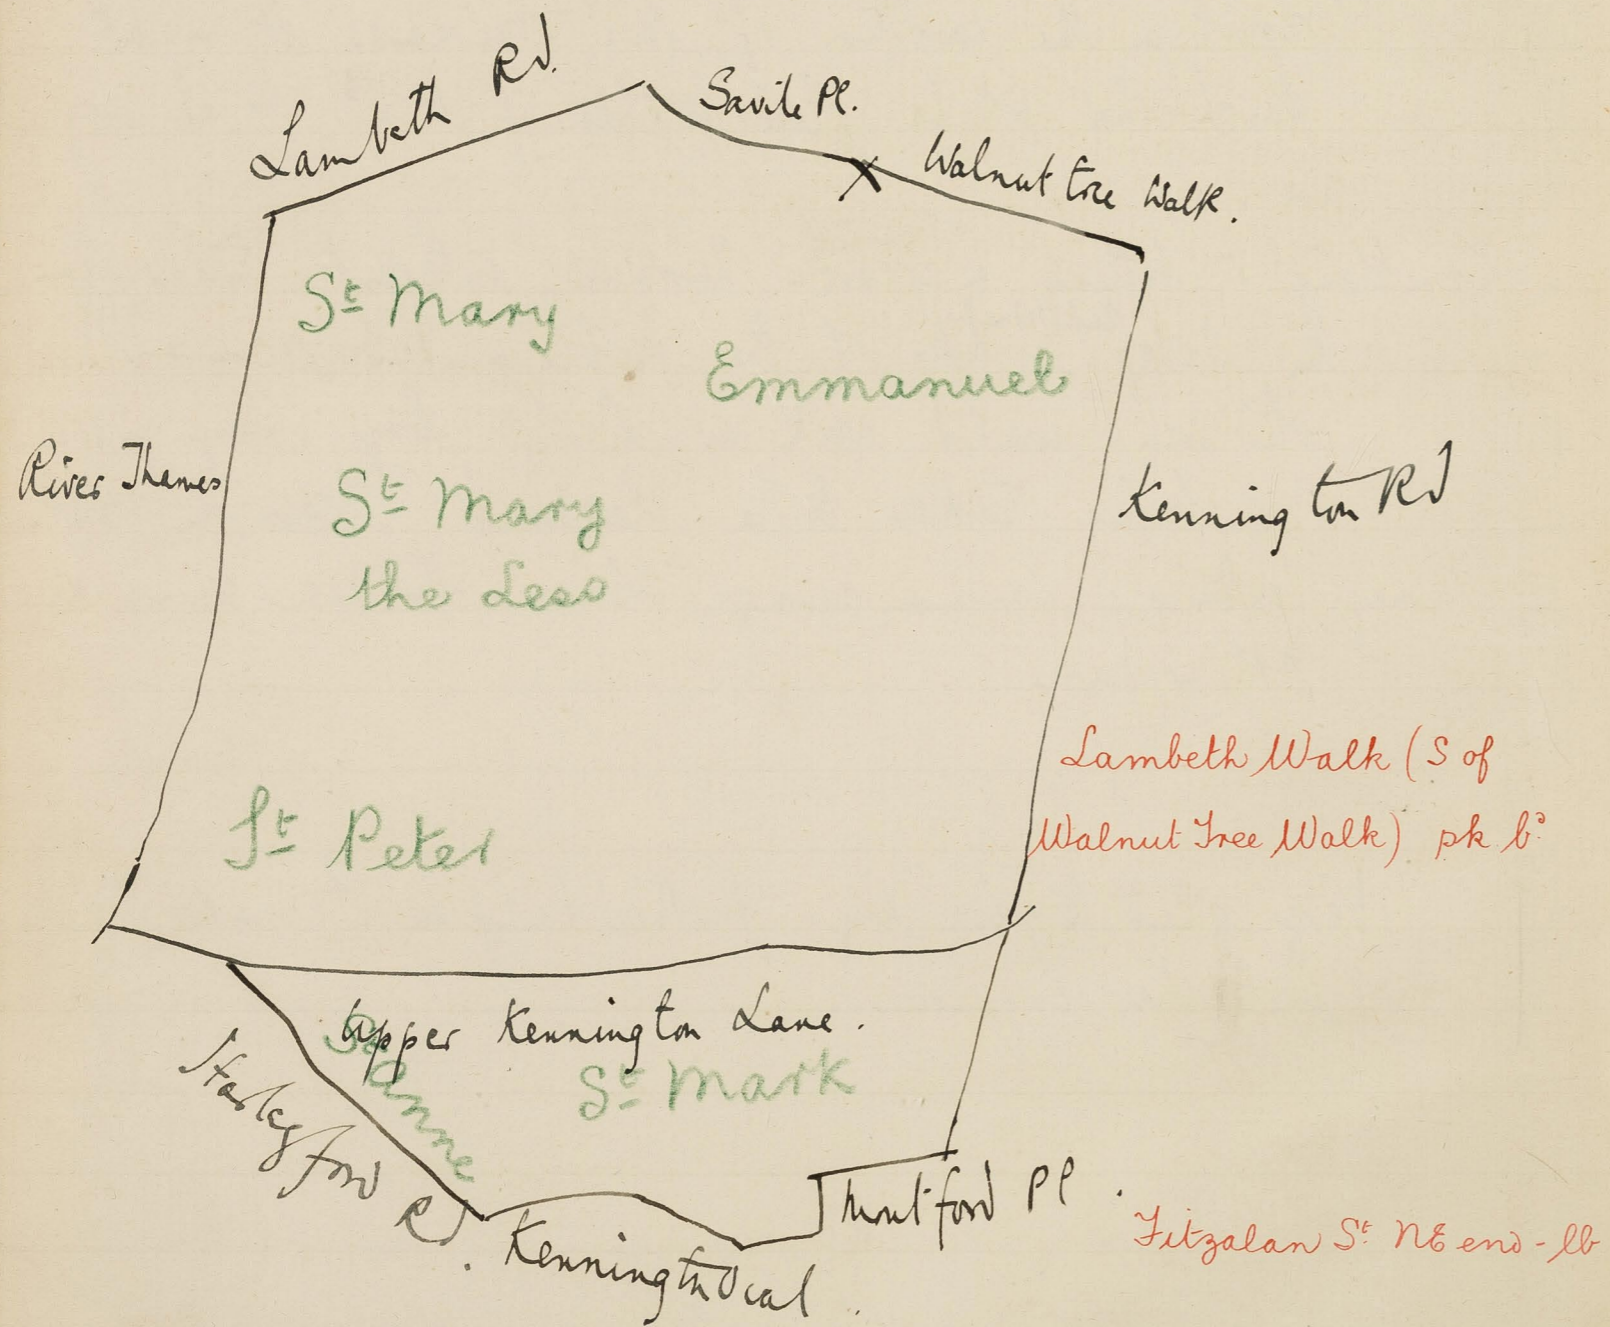 Lambeth Rd.
Savile Pl.
Walnut tree Walk.
St Mary
Emmanuel
River Thames
St Mary
the Less
Kennington Rd
Lambeth Walk (S of
Walnut Tree Walk) pk bd
St Peter
Upper Kennington Lane.
St Anne
St Mark
Harleyford Rd.
Muntford Pl.
Kennington Oval.
Fitzalan St NE end - lb